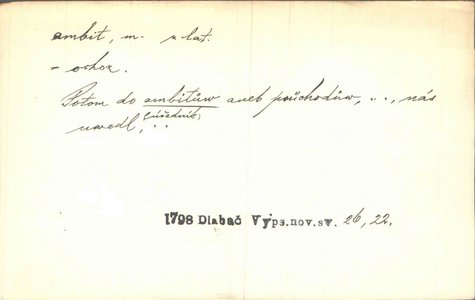 ambit, m. z lat.
- ochoz.
Potom do ambitůw aneb průchodůw, ..., nás
uwedl, (úředník) ..
1798 Dlabač Vyps.nov.sv. 26, 22.